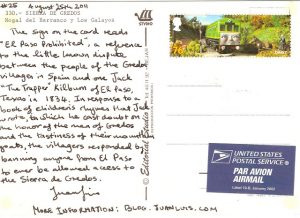 #25 August 25th 2011
330.- SIERRA DE GREDOS
Nogal del Barranco y Los Galayos
The sign on the card reads
"El Paso Prohibited", a reference
to the little known dispute
between the people of the Gredos
villages in Spain and one Jack
"The Trapper" Kilburn of El Paso,
Texas in 1834. In response to a
book of children's rhymes that Jack
wrote, in which he cast doubt on
the honor of the men of Gredos
and the tastiness of their mountain
goats, the villagers responded by
banning anyone from El Paso
to ever be allowed access to
the Sierra de Gredos.
Juanluis
MORE INFORMATION: BLOG.JUANLUIS.COM
STUDIO
© Editorial
UNITED STATES
POSTAL SERVICE
PAR AVION
AIRMAIL
Label 19-B, January 2003